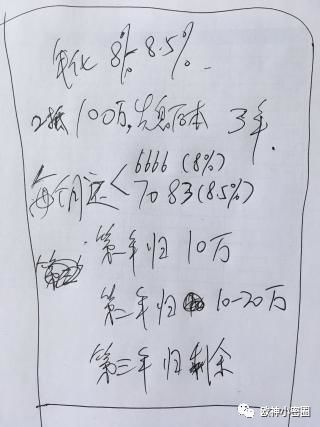 年化 8% 8.5%.
二抵 100万,先息后本 3年.
每个月还< 6666 (8%)
7083 (8.5%)
第一年归 10万
第二年归 10-20万
第三年归剩余
欧神小密圈